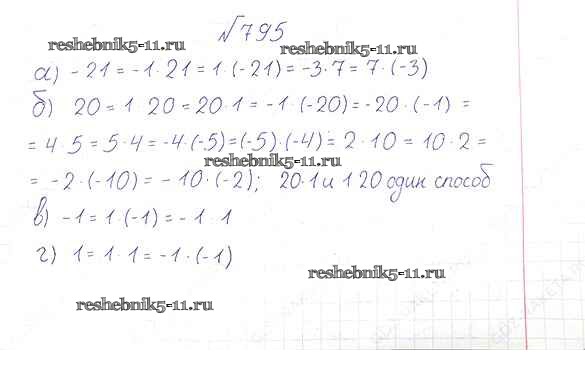 №795
reshebnik5-11.ru
reshebnik5-11.ru
а) -21 = -1·21 = 1·(-21) = -3·7 = 7·(-3)
б) 20 = 1 20 = 20·1 = -1·(-20) = -20·(-1) =
= 4·5 = 5·4 = -4·(-5) = (-5)·(-4) = 2·10 = 10·2 =
reshebnik5-11.ru
= -2·(-10) = -10·(-2); 20·1 и 1 20 один способ
в) -1 = 1·(-1) = -1·1
г) 1 = 1·1 = -1·(-1)
reshebnik5-11.ru
reshebnik5-11.ru